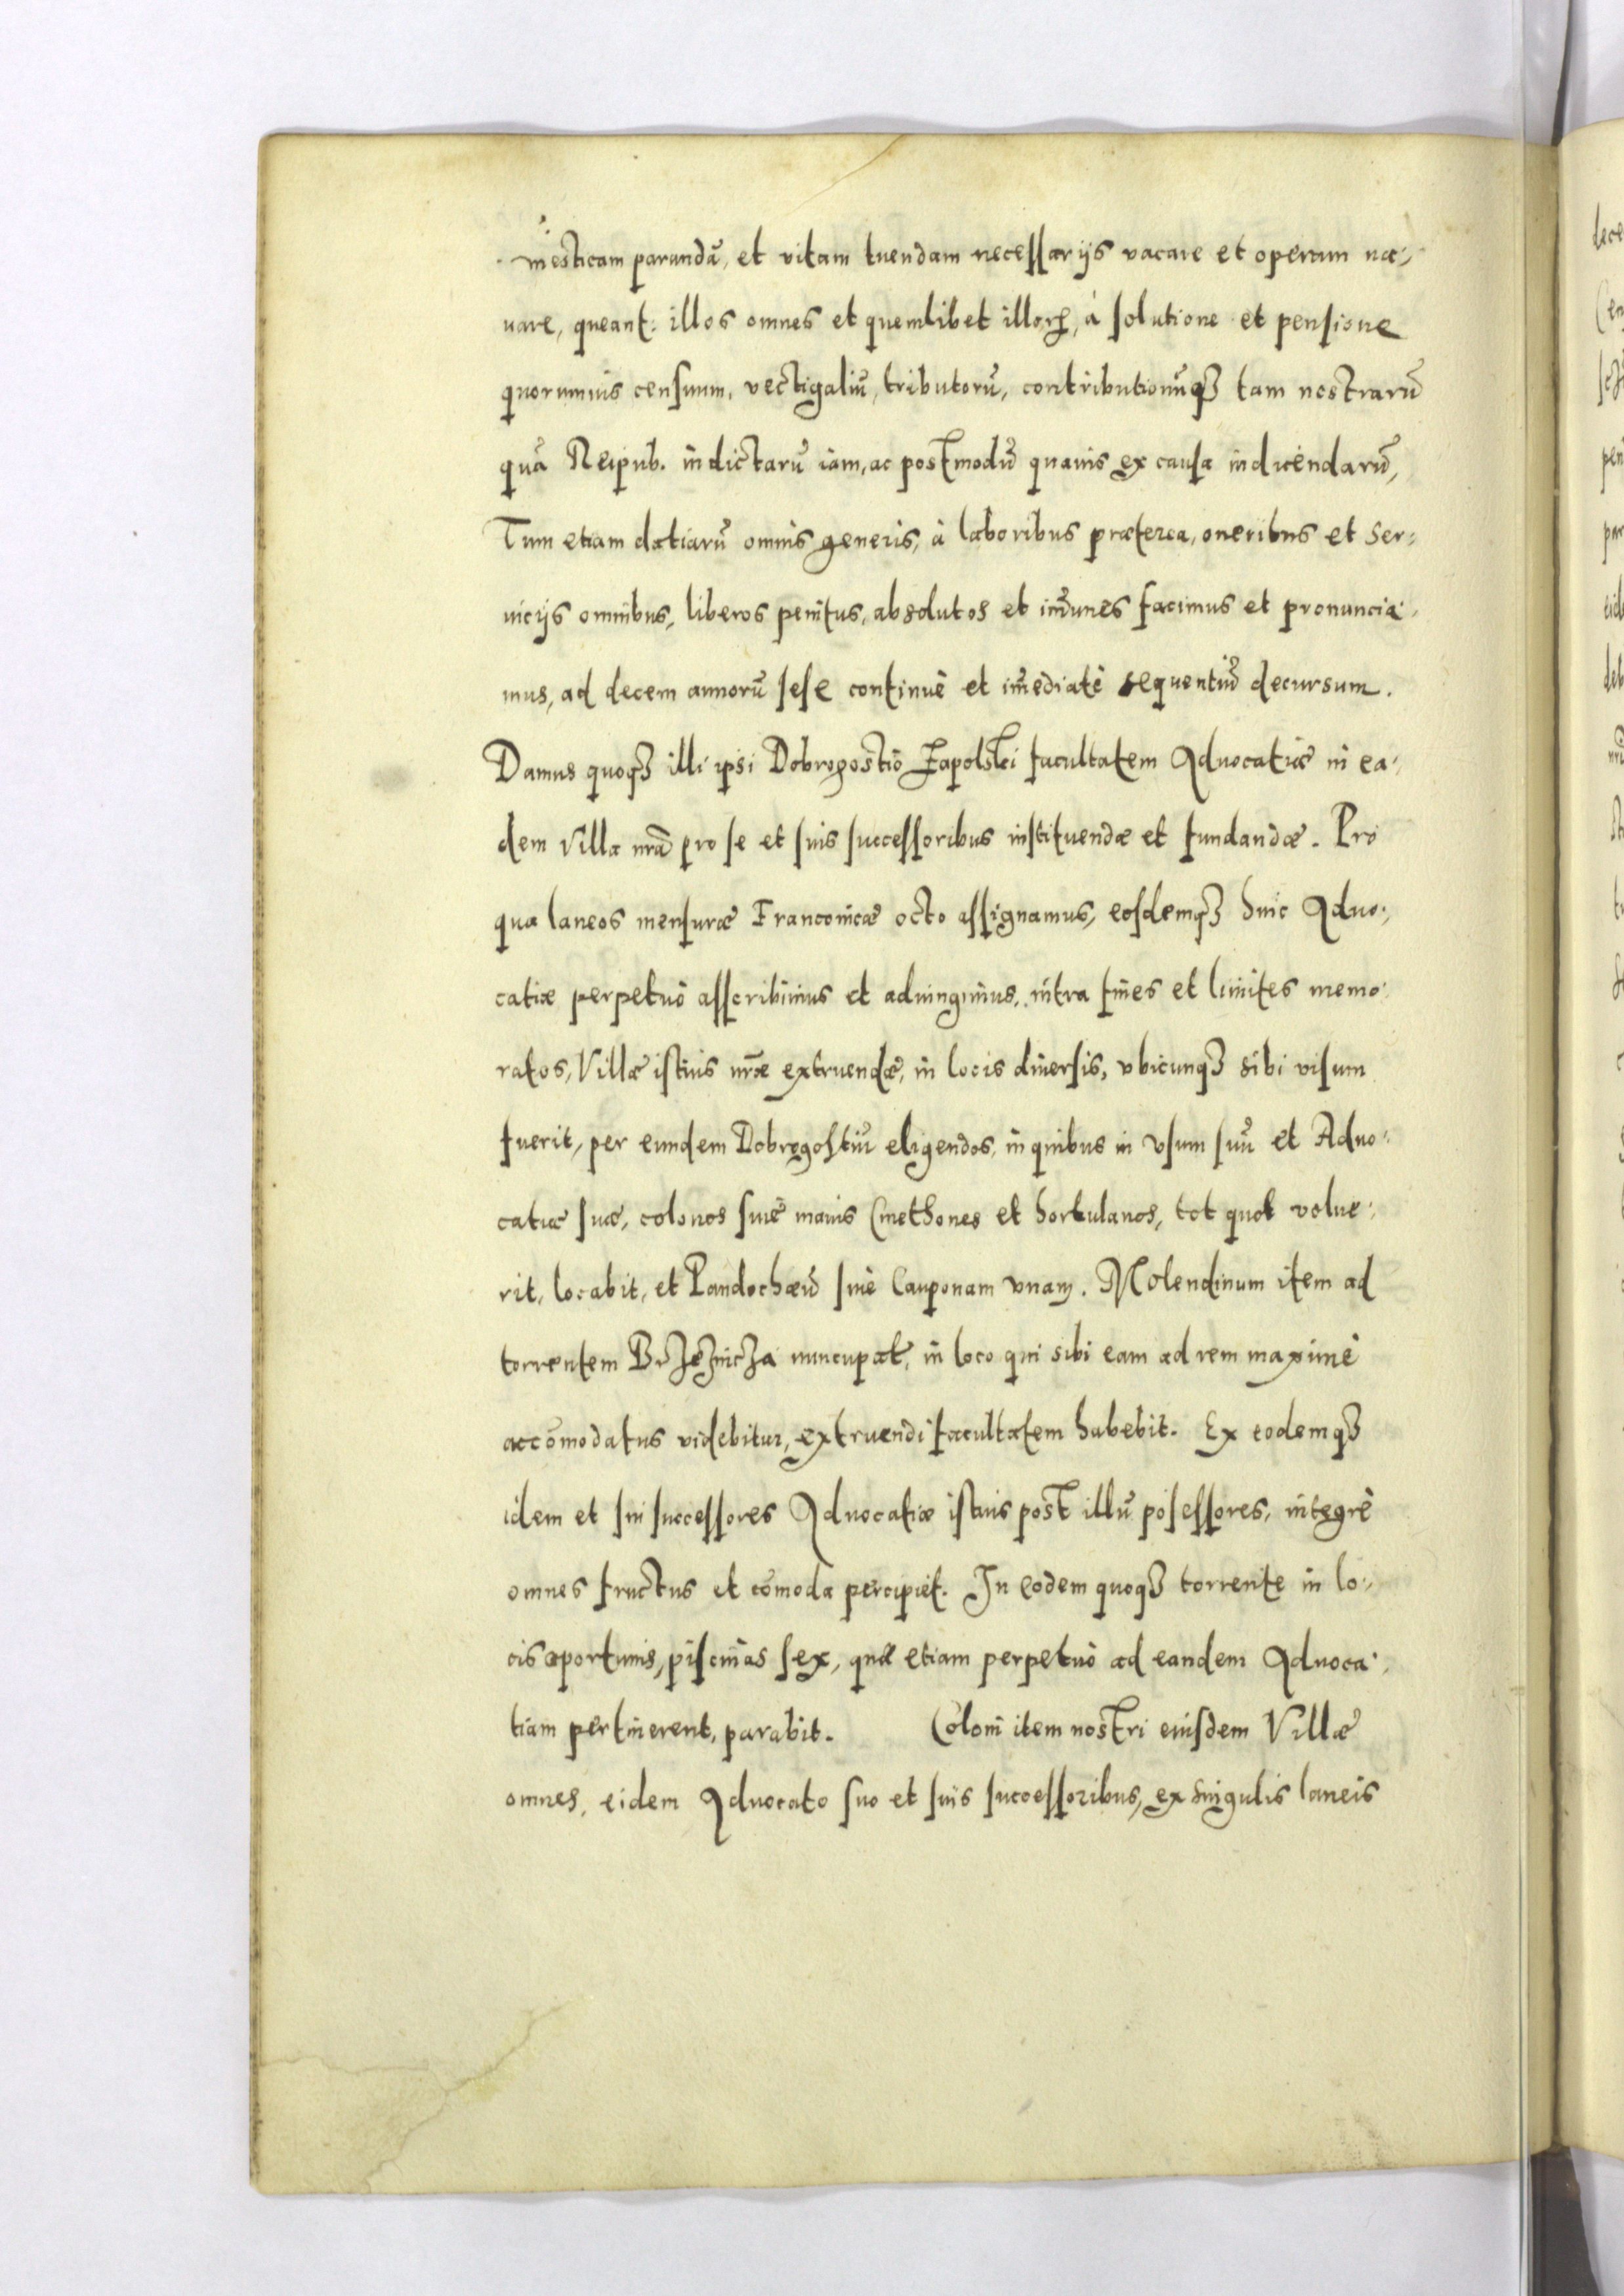 mesticam parandā, et vitam tuendam necessarijs vacare et operam na-
uare, queant: illos omnes et quemlibet illorꝝ, à solutione et pensione
quorumuis censuum, vectigaliū, tributorū, contributionūqꝫ tam nostrarū
quā Reipub. indictarū iam, ac postmodū quauis ex causa indicendarū,
Tum etiam datiarū omnis generis, à laboribus præterea, oneribus et ser-
uicijs omnibus, liberos penitus, absolutos et im̄unes facimus et pronuncia-
mus, ad decem annorū sese continuè et im̄ediatè sequentiū decursum.
Damus quoqꝫ illi ipsi Dobrogostio Łapolski facultatem Aduocatiæ in ea-
dem Villa nr̄a pro se et suis successoribus instituendæ et fundandæ. Pro
qua laneos mensuræ Franconicæ octo assignamus, eosdemqꝫ huic Aduo-
catiæ perpetuò asscribimus et adiungimus, intra fines et limites memo-
ratos, Villæ istius nr̄æ extruendæ, in locis diuersis, vbicunqꝫ sibi visum
fuerit, per eundem Dobrogostiū eligendos, in quibus in vsum suū et Aduo-
catiæ suæ, colonos siue mauis Cmethones et hortulanos, tot quot volue-
rit, locabit, et Pandochæū siue Cauponam vnam. Molendinum item ad
torrentem Brzeznicza nuncupat, in loco qui sibi eam ad rem maximè
accōmodatus videbitur, extruendi facultatem habebit. Ex eodemqꝫ
idem et sui successores Aduocatiæ istius post illū posessores, integrè
omnes fructus et cōmoda percipiet. In eodem quoqꝫ torrente in lo-
cis oportunis, piscinas sex, quæ etiam perpetuò ad eandem Aduoca-
tiam pertinerent, parabit. Coloni item nostri eiusdem Villæ
omnes, eidem Aduocato suo et suis successoribus, ex singulis laneis